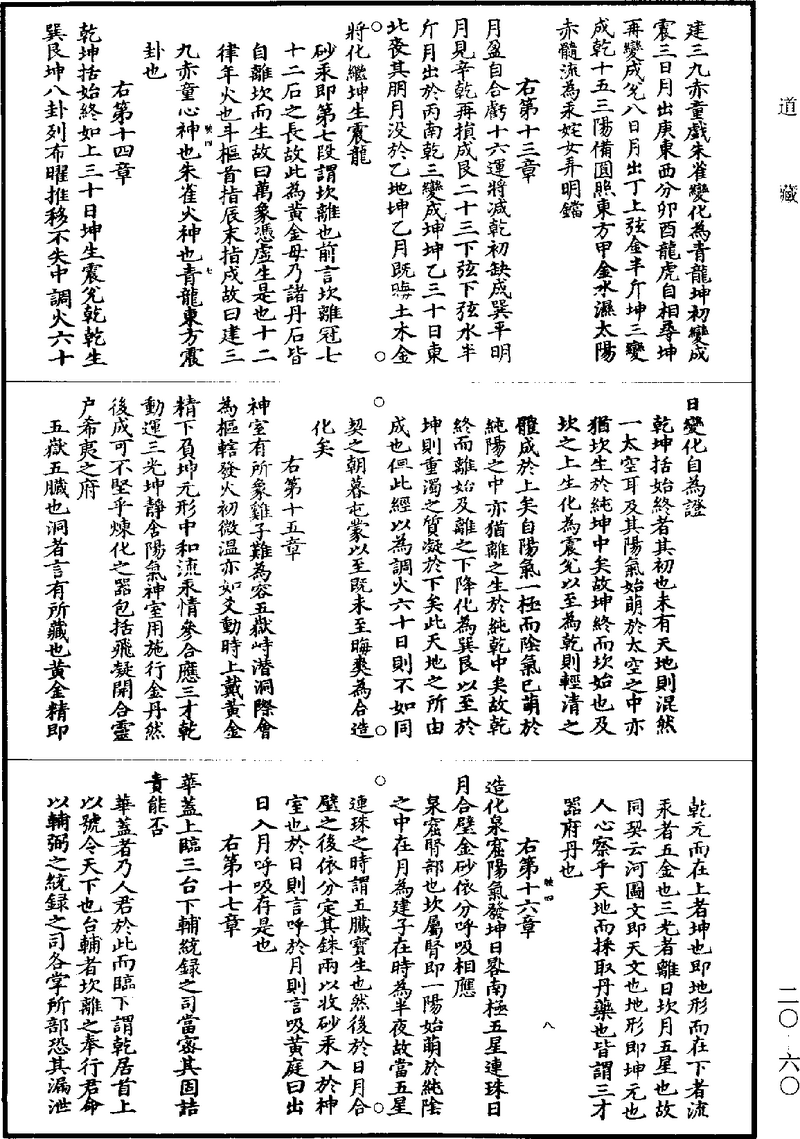 道藏
建三九赤童戲朱雀變化為青龍坤初變成
震三日月出庚東西分卯酉龍虎自相尋坤
再變成兌八日月出丁上弦金半斤坤三變
成乾十五三陽備圓照東方甲金水濕太陽
赤髓流為汞姹女弄明鐺
右第十三章
月盈自合虧十六運將減乾初缺成巽平明
月見辛乾再損成艮二十三下弦下弦水半
斤月出於丙南乾三變成坤坤乙三十日東
北喪其朋月没於乙地坤乙月既晦土木金
將化繼坤生震龍
砂汞即第七段謂坎離也前言坎離冠七
十二石之長故此為黃金母乃諸丹石皆
自離坎而生故曰萬象憑虛生是也十二
律年火也斗樞首指辰末指戌故曰建三
九赤童心神也朱雀火神也青龍東方震
卦也
號四
七
右第十四章
乾坤括始終如上三十日坤生震兌乾乾生
巽艮坤八卦列布曜推移不失中調火六十
日變化自為證
乾坤括始終者其初也未有天地則混然
一太空耳及其陽氣始萌於太空之中亦
猶坎生於純坤中矣故坤終而坎始也及
坎之上生化為震兌以至為乾則輕清之
體成於上矣自陽氣一極而陰氣已萌於
純陽之中亦猶離之生於純乾中矣故乾
終而離始及離之下降化為巽艮以至於
坤則重濁之質凝於下矣此天地之所由
成也但此經以為調火六十日則不如同
契之朝暮屯蒙以至既未至晦爽為合造
化矣
右第十五章
神室有所象雞子難為容五嶽峙潛洞際會
為樞轄發火初微溫亦如爻動時上戴黃金
精下負坤元形中和流汞情參合應三才乾
動運三光坤靜舍陽氣神室用施行金丹然
後成可不堅乎煉化之器包括飛凝開合靈
户希夷之府
五嶽五臟也洞者言有所藏也黃金精即
乾元而在上者坤也即地形而在下者流
汞者五金也三光者離日坎月五星也故
同契云河圖文即天文也地形即坤元也
人心察乎天地而採取丹藥也皆謂三才
器府丹也
號四
八
右第十六章
造化泉窟陽氣發坤日晷南極五星連珠日
月合璧金砂依分呼吸相應
泉窟腎部也坎屬腎即一陽始萌於純陰
之中在月為建子在時為半夜故當五星
連珠之時謂五臟寶生也然後於日月合
璧之後依分定其銖兩以收砂汞入於神
室也於日則言呼於月則言吸黃庭曰出
日入月呼吸存是也
右第十七章
華蓋上臨三台下輔統錄之司當審其固詰
責能否
華蓋者乃人君於此而臨下謂乾居首上
以號令天下也台輔者坎離之奉行君命
以輔弼之統錄之司各掌所部恐其漏泄
二〇·六〇